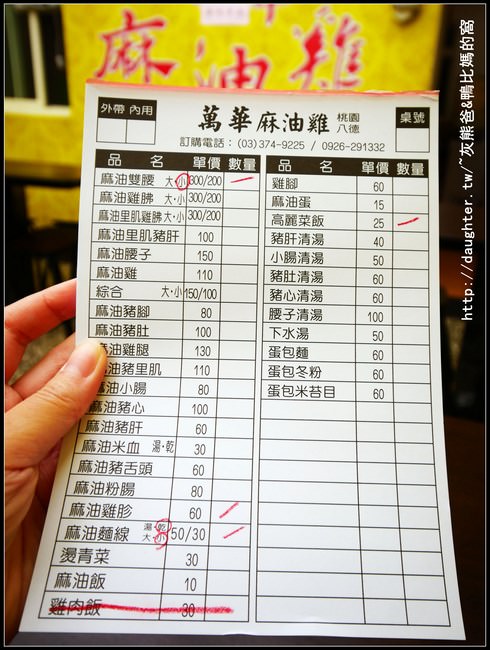 麻油雞
外帶 內用
萬華麻油雞 桃園 八德
桌號
訂購電話：(03)374-9225 / 0926-291332
品 名 單價 數量
麻油雙腰 大·小 300/200
麻油雞腓 大·小 300/200
麻油里肌雞腓 大·小 300/200
麻油里肌豬肝 100
麻油腰子 150
麻油雞 110
綜合 大·小 150/100
麻油豬腳 80
麻油豬肚 100
麻油雞腿 130
麻油豬里肌 110
麻油小腸 80
麻油豬心 100
麻油豬肝 60
麻油米血 湯·乾 30
麻油豬舌頭 60
麻油粉腸 80
麻油雞胗 60
麻油麵線 湯·乾 大·小 50/30
燙青菜 30
麻油飯 10
雞肉飯 30
品 名 單價 數量
雞腳 60
麻油蛋 15
高麗菜飯 25
豬肝清湯 40
小腸清湯 50
豬肚清湯 60
豬心清湯 60
腰子清湯 100
下水湯 50
蛋包麵 60
蛋包冬粉 60
蛋包米苔目 60
http://daughter.tw/~灰熊爸&鴨比媽的窩